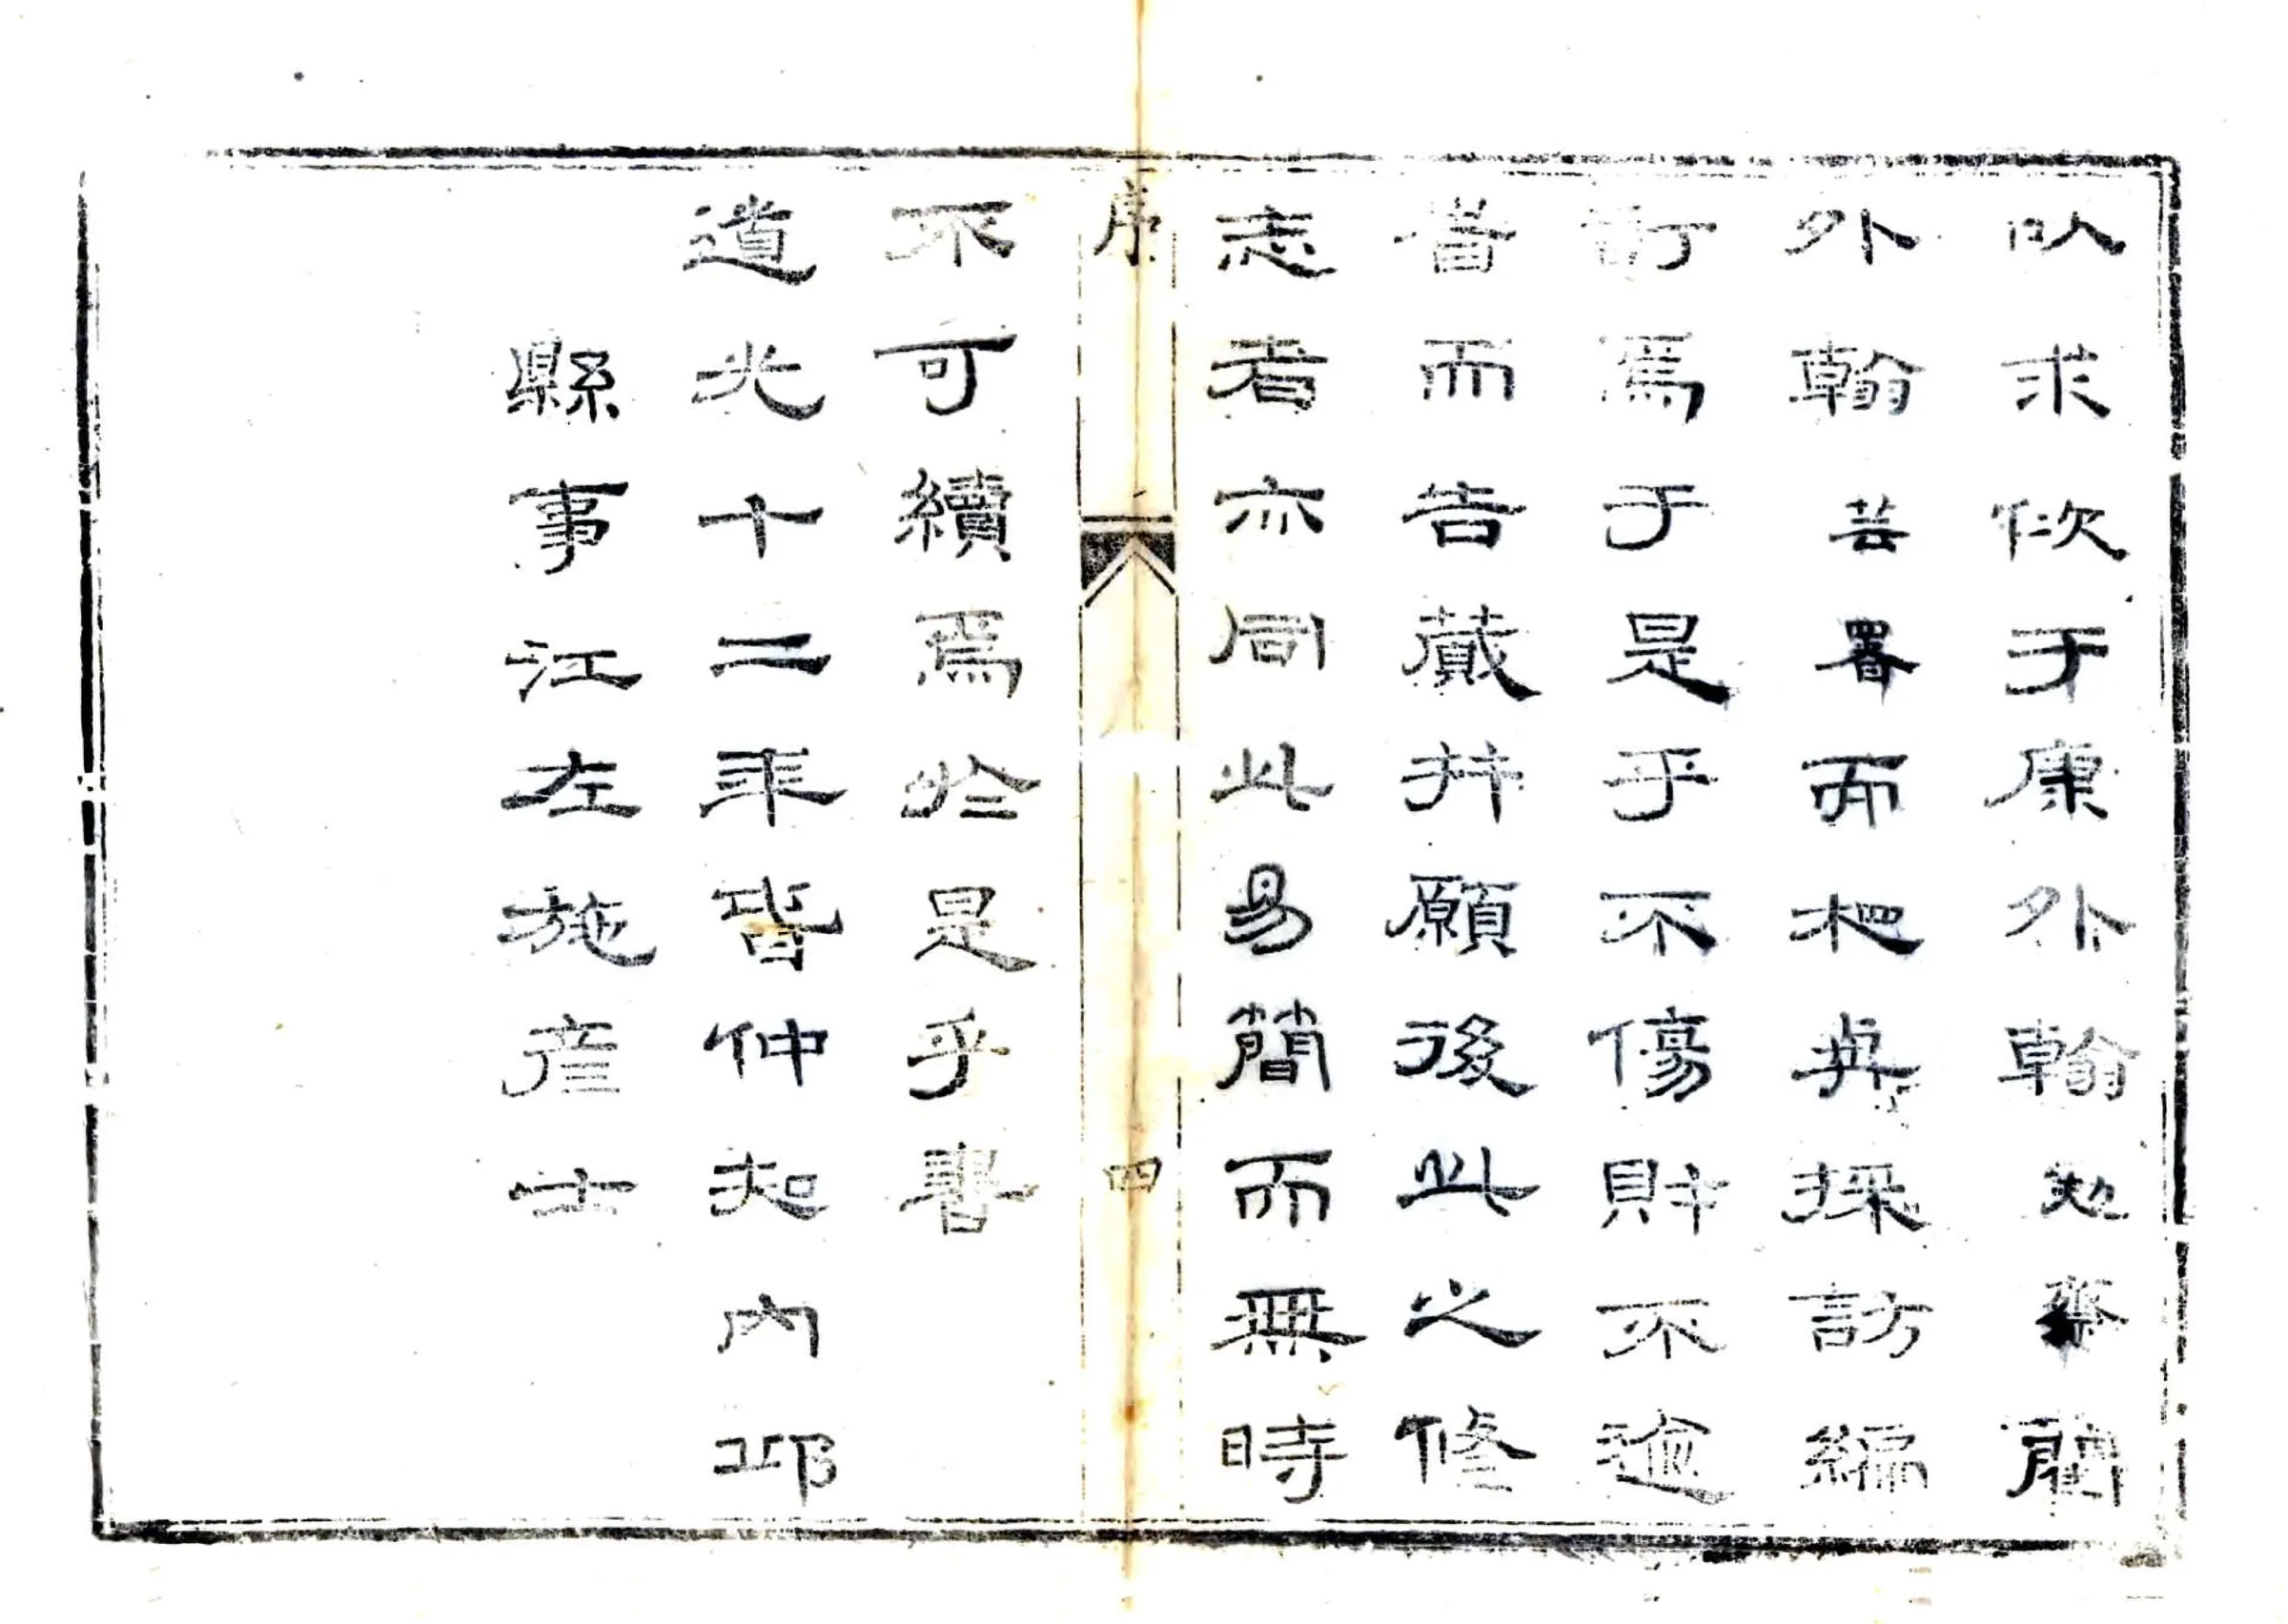 以求佽于康外翰勉齋藺
外翰芸署而相與採訪編
訂焉于是乎不傷財不逾
旹而告蕆并願後此之修
志者亦同此易簡而無時
序 四
不可續焉於是乎書
道光十二年春仲知內邱
縣事江左施彥士